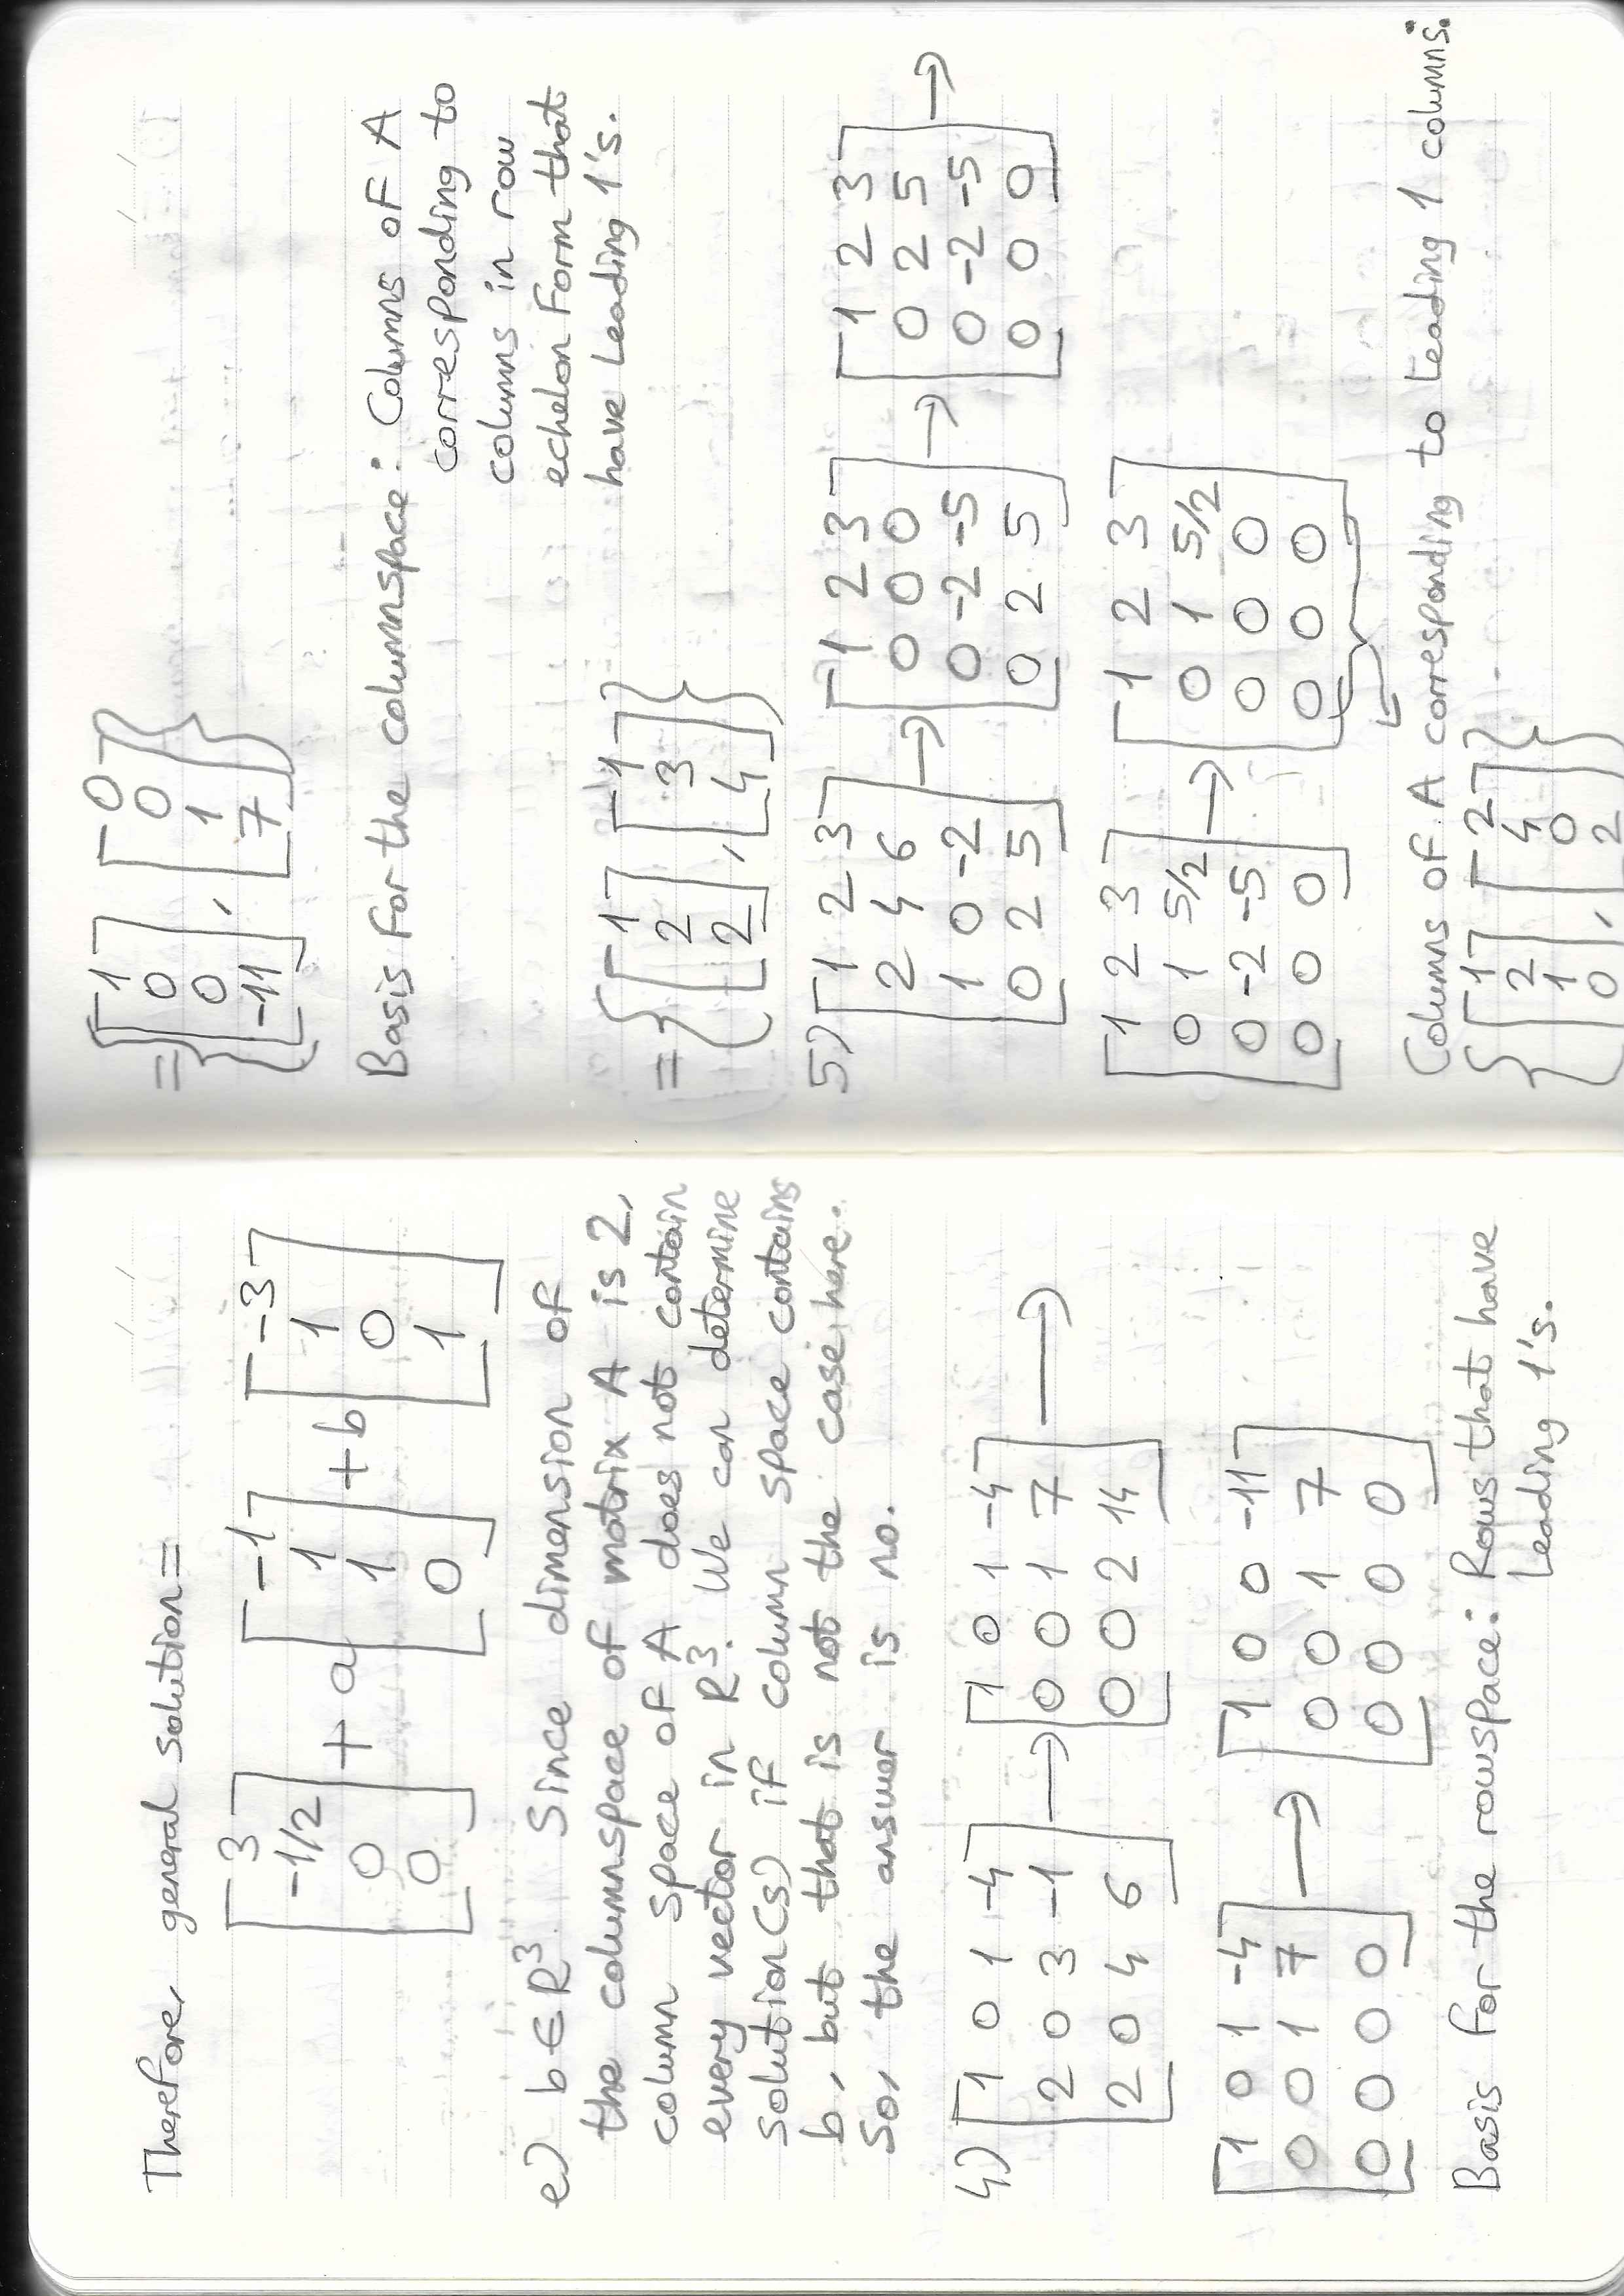 Therefore, general solution =
[3 -1/2 0 0] + a [-1 1 1 0] + b [-3 1 0 1]
e) b ∈ R³. Since dimension of
the columnspace of matrix A is 2,
column space of A does not contain
every vector in R³. We can determine
solution(s) if column space contains
b, but that is not the case here.
So, the answer is no.
4) [1 0 1 -4 → [1 0 1 -4 →
2 0 3 -1 0 0 1 7
2 0 4 6] 0 0 2 14]
[1 0 1 -4 → [1 0 0 -11
0 0 1 7 0 0 1 7
0 0 0 0] 0 0 0 0]
Basis for the rowspace: Rows that have
leading 1's.
= {[1 0 0 -11], [0 0 1 7]}
Basis for the columnspace: Columns of A
corresponding to
columns in row
echelon form that
have leading 1's.
= {[1 2 2], [1 3 4]}
5) [1 2 3 → [1 2 3 → [1 2 3 →
2 4 6 0 0 0 0 2 5
1 0 -2 0 -2 -5 0 -2 -5
0 2 5] 0 2 5] 0 0 0]
[1 2 3 → [1 2 3
0 1 5/2 0 1 5/2
0 -2 -5 0 0 0
0 0 0] 0 0 0]
Columns of A corresponding to leading 1 columns:
{[1 2 1 0], [2 4 0 2]}